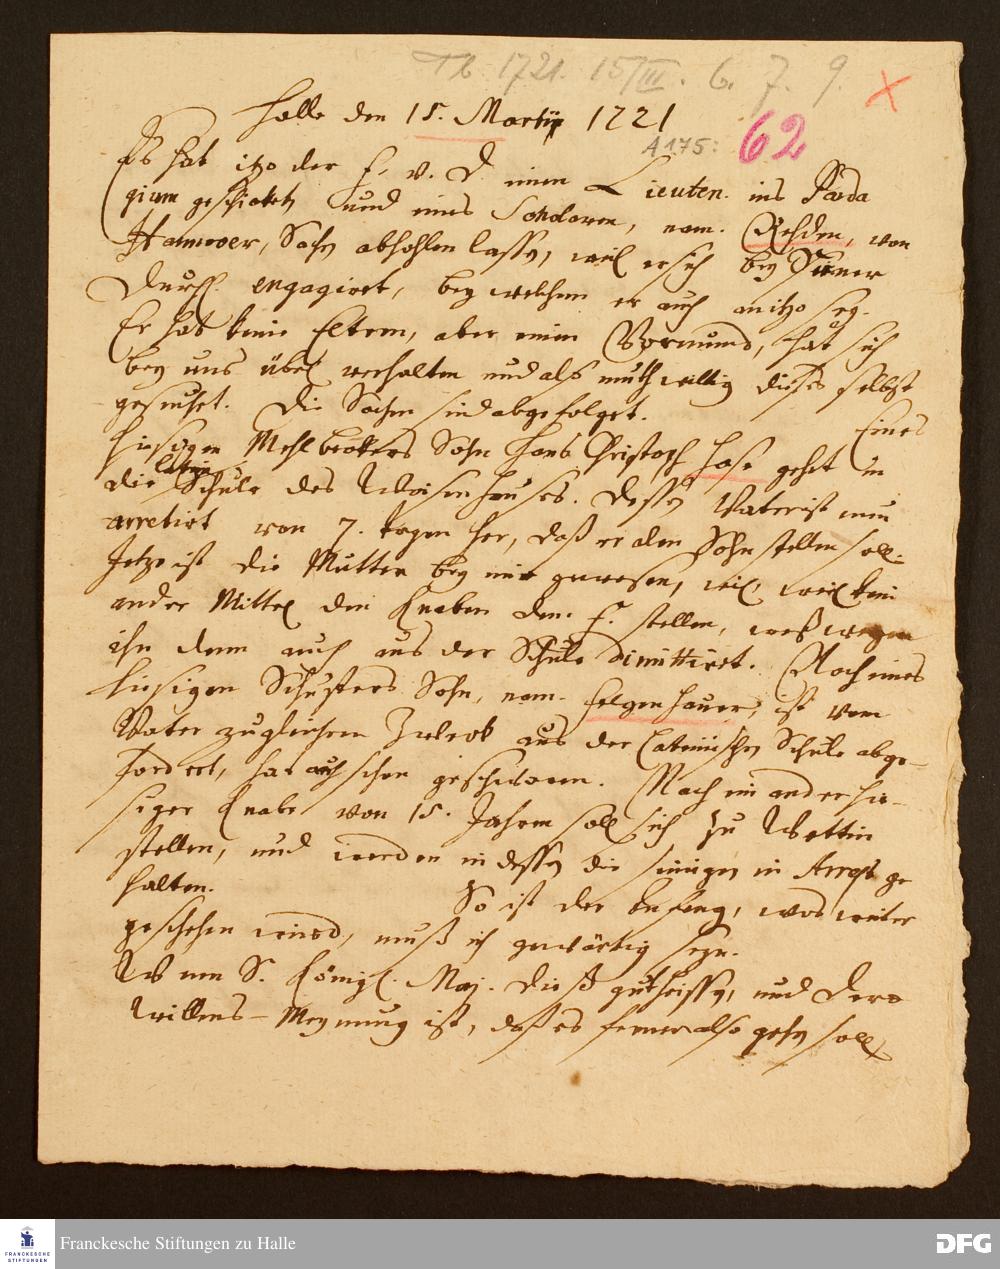 Tb 1721. 15/III. 6. 7. 9.
Halle den 15. Martij 1721
A 175: 62
Es hat itzo der F. v. D. einen Lieuten. ins Paeda
gium geschicket und eines Scholaren, nom. Rehden, von
Hannover, Sachen abhohlen lassen, weil er sich bey Seiner
Durchl. engagiret, bey welchem er auch anitzo sey.
Er hat keine Eltern, aber einen Vormund, hat sich
bey uns übel verhalten und also muthwillig dieses selbst
gesuchet. Die Sachen sind abgefolget. Eines
hiesigen Mehlbeckers Sohn Hans Christoph Hase gehet in
die latein. Schule des Waisenhauses. Dessen Vater ist nun
arretirt von 7. tagen her, daß er den Sohn stellen soll.
Jetzo ist die Mutter bey mir gewesen, weil kein
ander Mittel den Knaben dem F. stellen, weßwegen
ihn denn auch aus der Schule dimittiret. Noch eines
hiesigen Schusters Sohn, nom. Felgenhauer, ist vom
Vater zu gleichem Zweck aus der Lateinischen Schule abge-
fordert, hat auch schon geschworen. Noch ein ander hie-
siger Knabe von 15. Jahren soll sich zu Wettin
stellen, und werden indessen die seinigen in Arrest ge
halten. So ist der Anfang, was weiter
geschehen wird, muß ich gewärtig seyn.
Wenn S. Königl. Maj. dieß gutheissen, und Dero
Willens-Meynung ist, daß es ferner also gehen soll,
Franckesche Stiftungen zu Halle
FRANCKESCHE
STIFTUNGEN
DFG